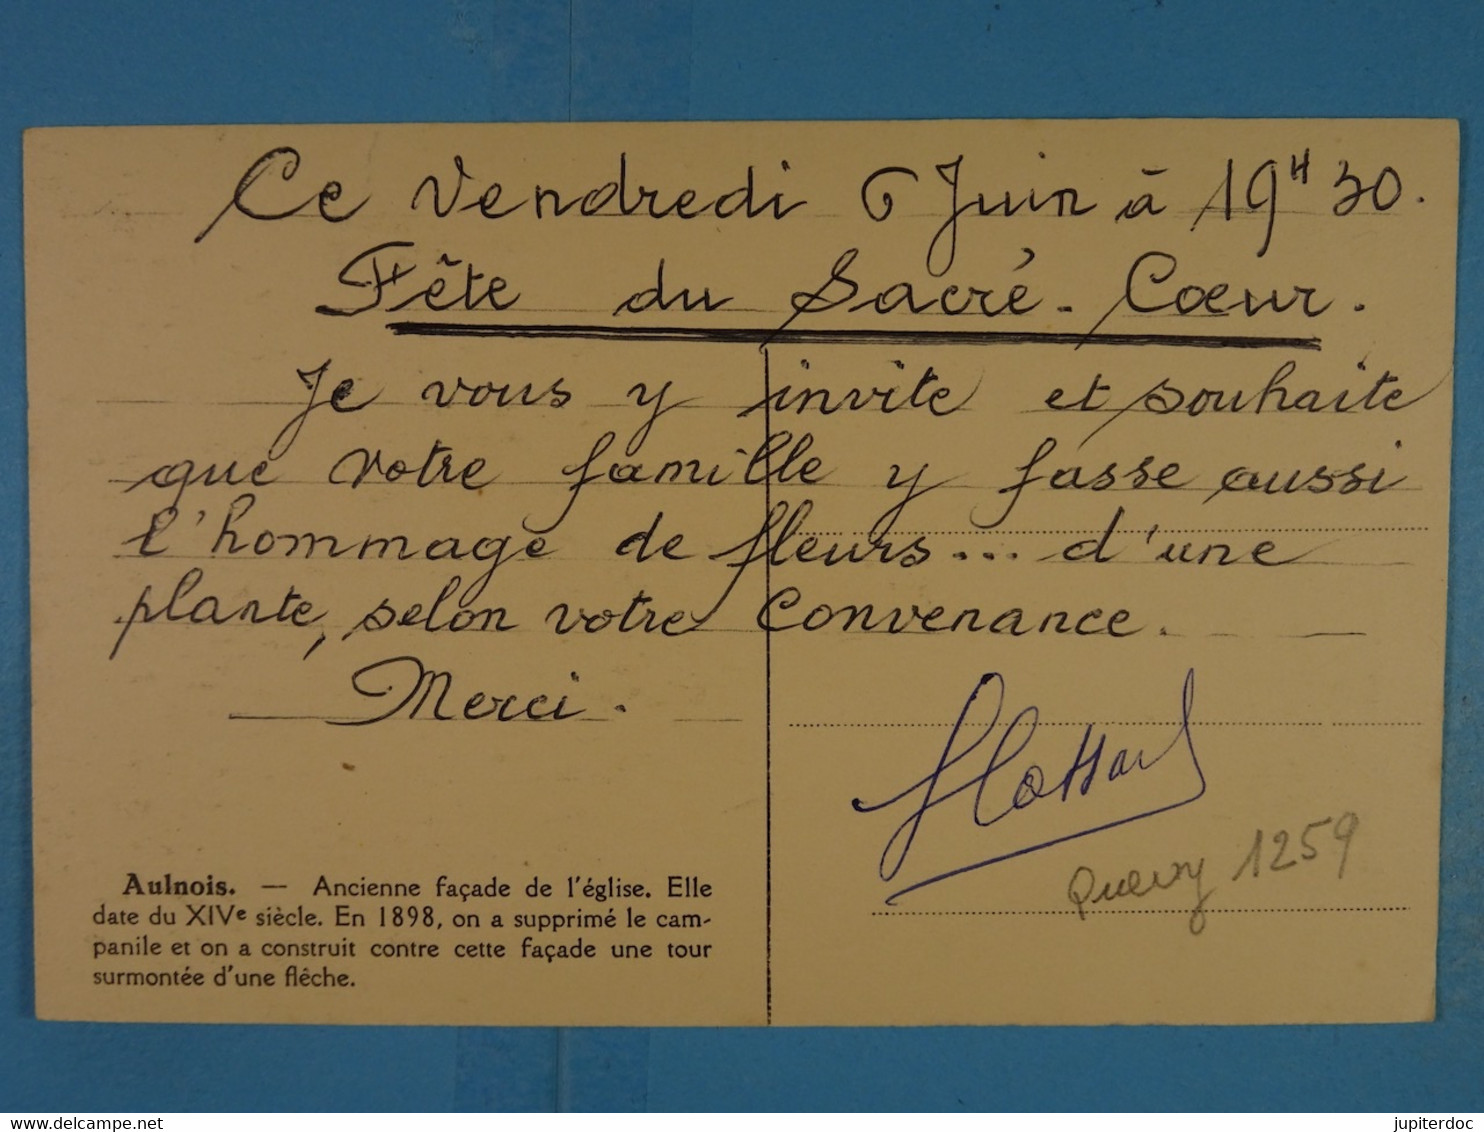 Ce Vendredi 6 Juin à 19H30.
Fête du Sacré-Cœur.
Je vous y invite et souhaite
que votre famille y fasse aussi
l'hommage de fleurs... d'une
plante, selon votre convenance.
Merci.
Quevy 1259
Aulnois. — Ancienne façade de l'église. Elle
date du XIVe siècle. En 1898, on a supprimé le cam-
panile et on a construit contre cette façade une tour
surmontée d'une flêche.
delcampe.net
jupiterdoc